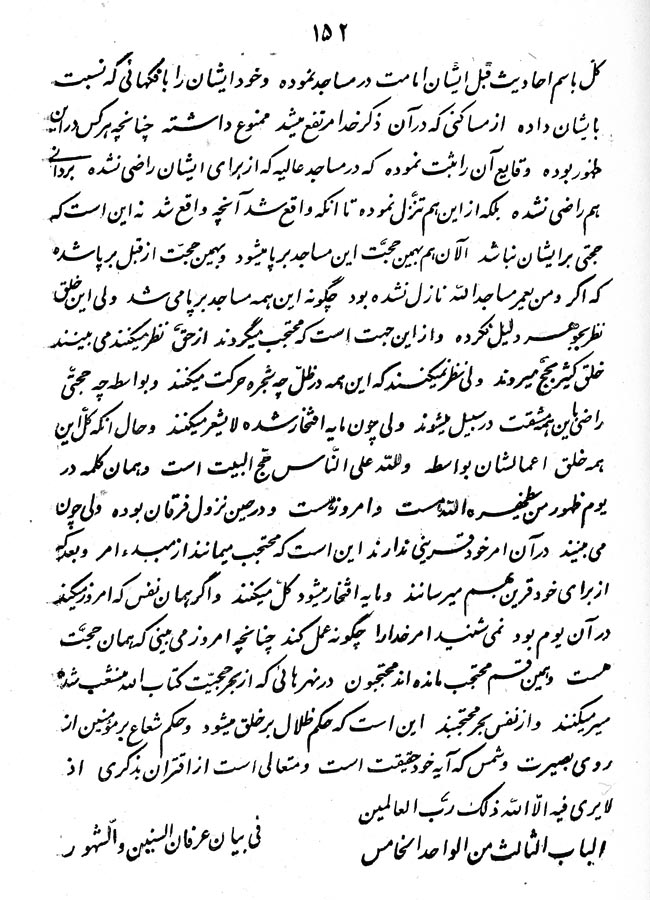 ۱۵۲
کلّ باسم احادیث قبل ایشان امامت در مساجد نموده و خود ایشان را بافکهائی که نسبت
بایشان داده از مساکنی که در آن ذکر خدا مرتفع میشد ممنوع داشته چنانچه هر کس در این
ظهور بوده وقایع آن را ثبت نموده که در مساجد عالیه که از برای ایشان راضی نشده بردانی
هم راضی نشده بلکه از این هم تنزّل نموده تا انکه واقع شد آنچه واقع شد نه این است که
حجتی بر ایشان نباشد الآن هم بهمین حجّت این مساجد بر پا میشود و بهمین حجّت از قبل بر پا شده
که اگر و من یعمر مساجد اللّه نازل نشده بود چگونه این همه مساجد بر پا می شد ولی این خلق
نظر بجوهر دلیل نکرده و از این جهت است که محتجب میگردند از حقّ نظر میکنند می بینند
خلق کثیر بحجّ میروند ولی نظر نمیکنند که این همه در ظلّ چه شجره حرکت میکنند و بواسطه چه حجّتی
راضی باین همه مشقت در سبیل میشوند ولی چون مایه افتخار شده لا یشعر میکنند و حال انکه کلّ این
همه خلق اعمالشان بواسطه و للّه علی النّاس حجّ البیت است و همان کلمه در
یوم ظهور من یظهره اللّه هست و امروز هست و در حین نزول فرقان بوده ولی چون
می بینند در آن امر خود قرینی ندارند این است که محتجب میمانند از مبدء امر و بعد که
از برای خود قرین بهم میرسانند و مایه افتخار میشود کلّ میکنند و اگر همان نفس که امروز میکند
در آن یوم بود نمی شنید امر خدا را چگونه عمل کند چنانچه امروز می بینی که همان حجّت
هست و بهمین قسم محتجب مانده اند محتجبون در نهرهائی که از بحر حجیّت کتاب اللّه منشعب شده
سیر میکنند و از نفس بحر محتجبند این است که حکم ظلال بر خلق میشود و حکم شعاع بر مؤمنین از
روی بصیرت و شمس که آیه خود حقیقت است و متعالی است از اقتران بذکری اذ
لا یری فیه الّا اللّه ذلک ربّ العالمین
الباب الثالث من الواحد الخامس فی بیان عرفان السنین و الشهور